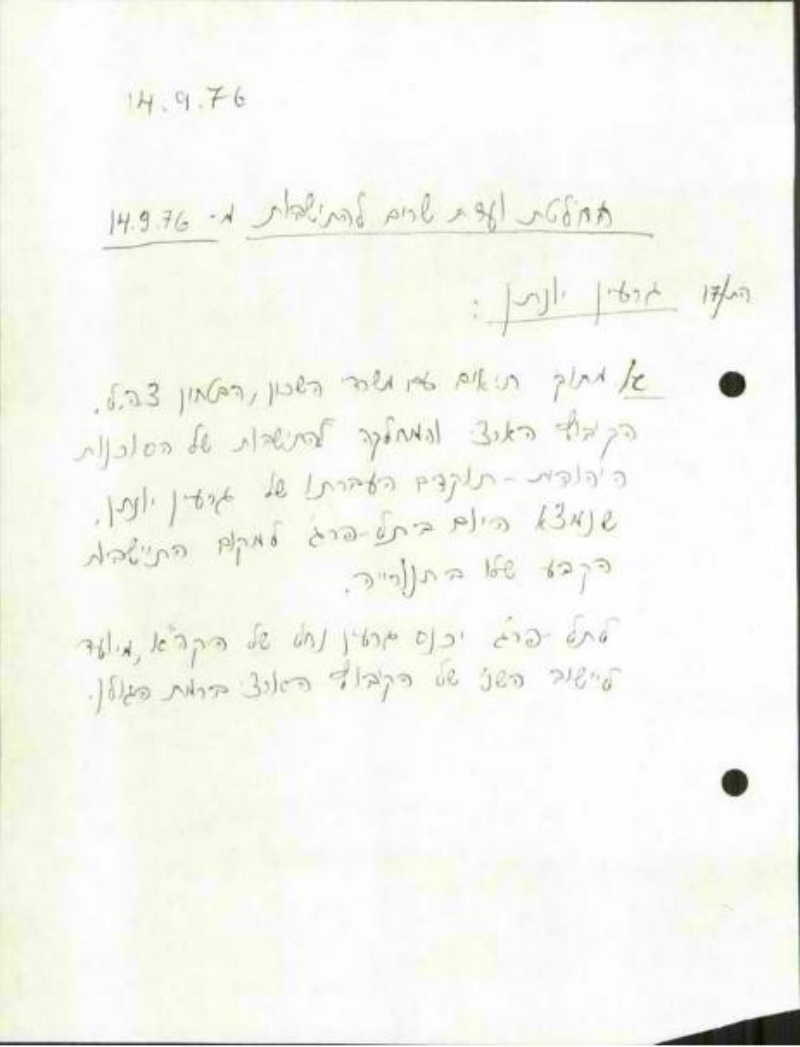 14.9.76
החלטת ועדת שרים להתישבות מ- 14.9.76
הת/17 גרעין יונתן :
א/ מתוך תיאום עם משרדי השכון, הבטחון צה.ל.
הקיבוץ הארצי והמחלקה להתישבות של הסוכנות
היהודית - תוקדם העברתו של גרעין יונתן,
שנמצא היום בתל-פרג' למקום התיישבות
הקבע שלו בתנורייה.
לתל-פרג' יכנס גרעין נחל של הקה"א, מיועד
ליישוב השני של הקיבוץ הארצי ברמת הגולן.